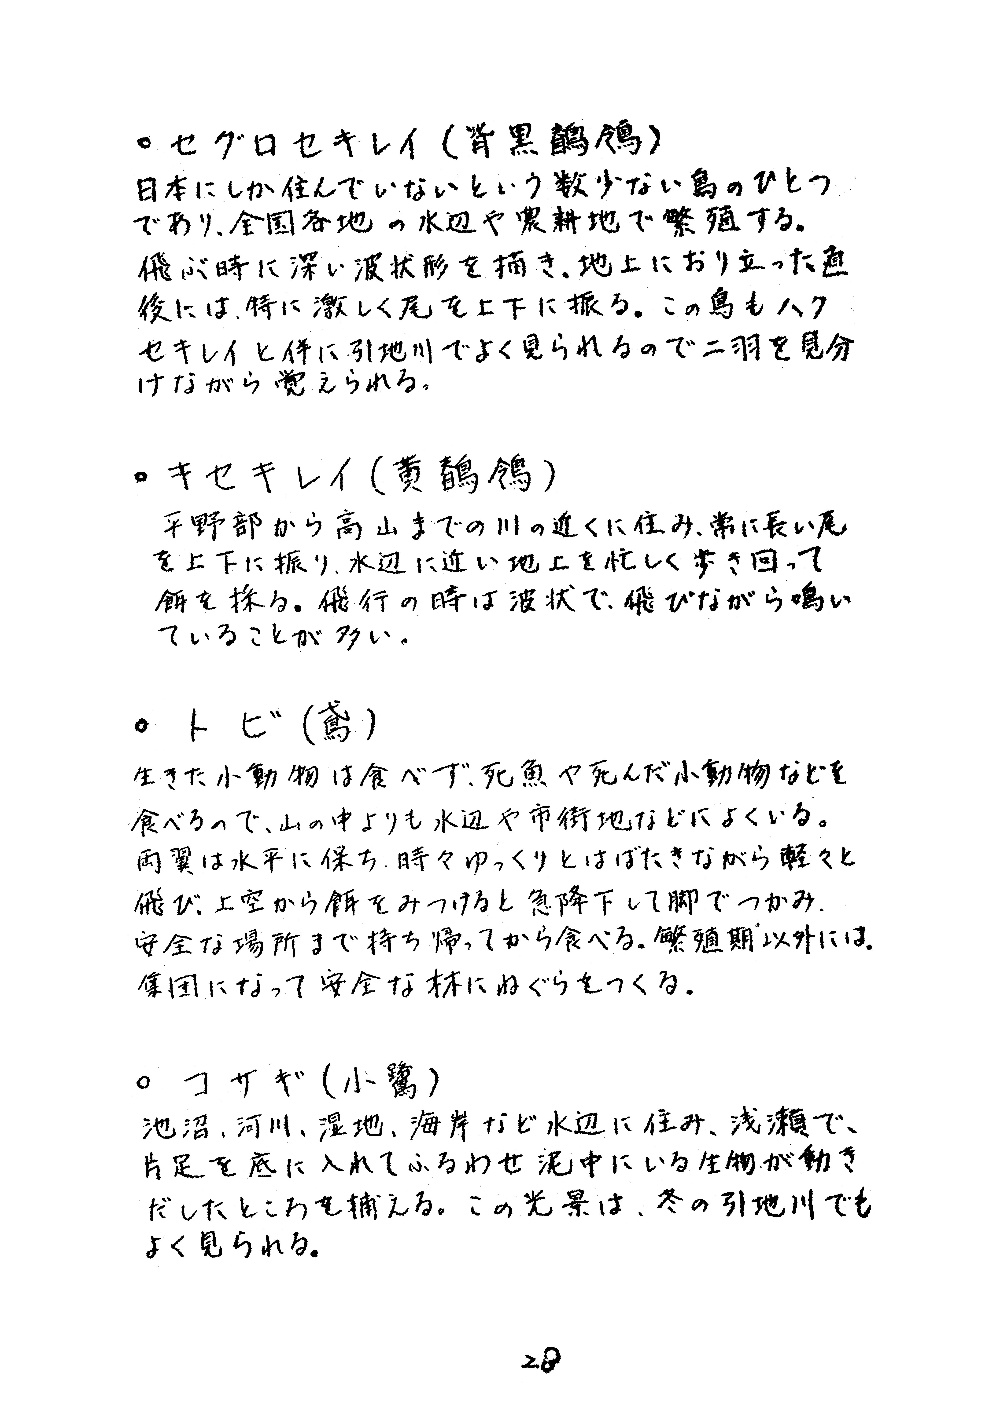 ○ セグロセキレイ(背黒鶺鴒)
日本にしか住んでいないという数少ない鳥のひとつ
であり、全国各地の水辺や農耕地で繁殖する。
飛ぶ時に深い波状形を描き、地上におり立った直
後には、特に激しく尾を上下に振る。この鳥もハク
セキレイと伴に引地川でよく見られるので二羽を見分
けながら覚えられる。
○ キセキレイ(黄鶺鴒)
平野部から高山までの川の近くに住み、常に長い尾
を上下に振り、水辺に近い地上を忙しく歩き回って
餌を採る。飛行の時は波状で、飛びながら鳴い
ていることが多い。
○ トビ(鳶)
生きた小動物は食べず、死魚や死んだ小動物などを
食べるので、山の中よりも水辺や市街地などによくいる。
両翼は水平に保ち、時々ゆっくりとはばたきながら軽々と
飛び、上空から餌をみつけると急降下して脚でつかみ、
安全な場所まで持ち帰ってから食べる。繁殖期以外には、
集団になって安全な林にねぐらをつくる。
○ コサギ(小鷺)
池沼、河川、湿地、海岸など水辺に住み、浅瀬で、
片足を底に入れてふるわせ泥中にいる生物が動き
だしたところを捕える。この光景は、冬の引地川でも
よく見られる。
28